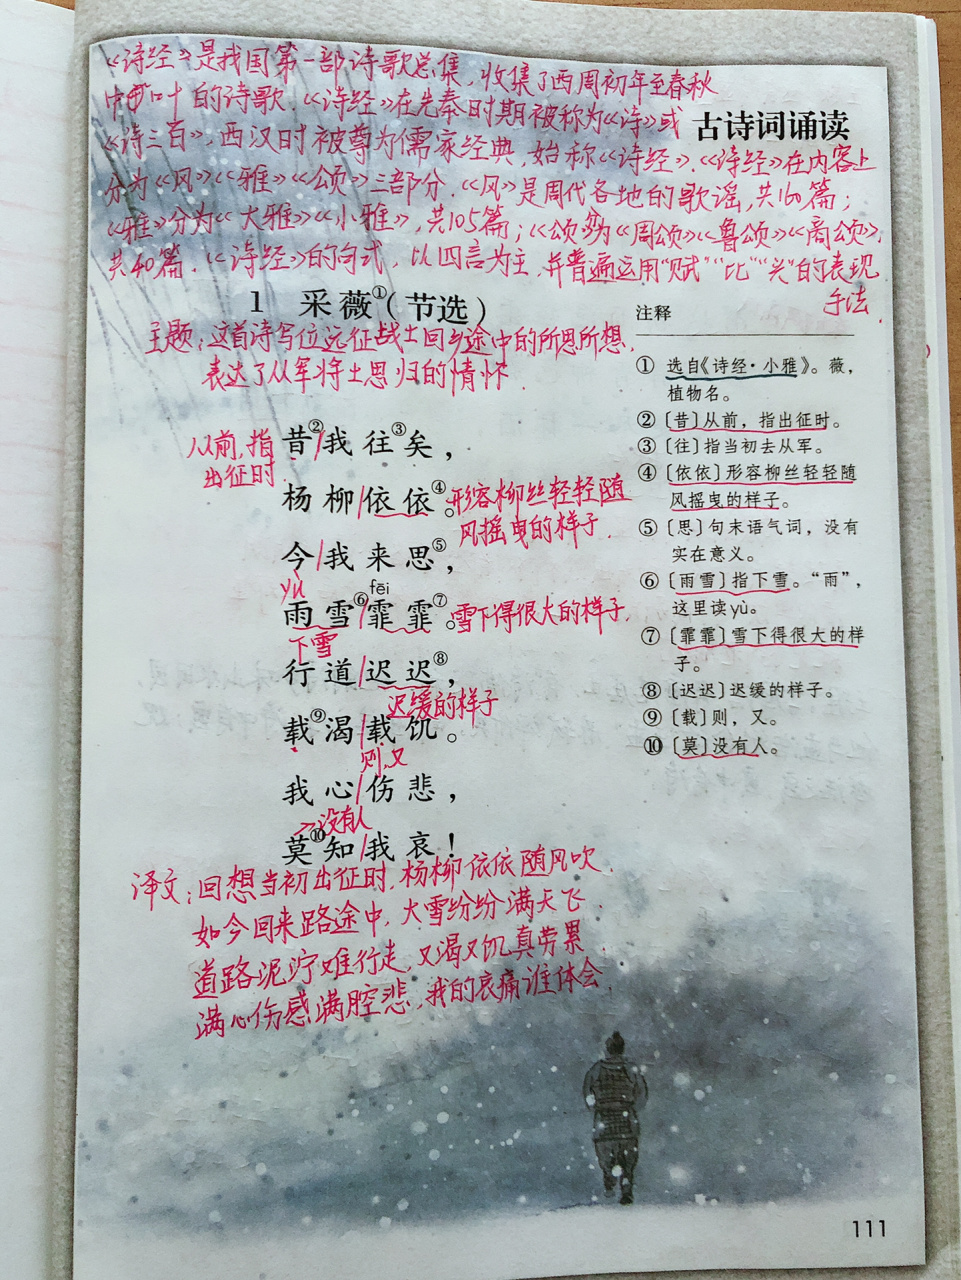 《诗经》是我国第一部诗歌总集,收集了西周初年至春秋
中叶的诗歌.《诗经》在先秦时期被称为《诗》或
古诗词诵读
《诗三百》,西汉时被尊为儒家经典,始称《诗经》.《诗经》在内容上
分为《风》《雅》《颂》三部分.《风》是周代各地的歌谣,共160篇;
《雅》分为《大雅》《小雅》,共105篇;《颂》分为《周颂》《鲁颂》《商颂》,
共40篇.《诗经》的句式,以四言为主,并普遍运用"赋""比""兴"的表现
手法.
1 采薇①(节选)
主题:这首诗写位远征战士回乡途中的所思所想,
表达了从军将士思归的情怀.
从前,指
出征时.
昔②/我往③矣,
杨柳/依依④。
形容柳丝轻轻随
风摇曳的样子.
今/我来思⑤,
yù
fēi
雨雪⑥/霏霏⑦。
雪下得很大的样子.
下雪
行道/迟迟⑧,
迟缓的样子
载⑨渴/载饥。
则,又
我心/伤悲,
→没有人
莫⑩知/我哀!
译文:回想当初出征时,杨柳依依随风吹.
如今回来路途中,大雪纷纷满天飞.
道路泥泞难行走,又渴又饥真劳累.
满心伤感满腔悲,我的哀痛谁体会.
注释
① 选自《诗经·小雅》。薇,
植物名。
②〔昔〕从前,指出征时。
③〔往〕指当初去从军。
④〔依依〕形容柳丝轻轻随
风摇曳的样子。
⑤〔思〕句末语气词,没有
实在意义。
⑥〔雨雪〕指下雪。“雨”,
这里读yù。
⑦〔霏霏〕雪下得很大的样
子。
⑧〔迟迟〕迟缓的样子。
⑨〔载〕则,又。
⑩〔莫〕没有人。
111